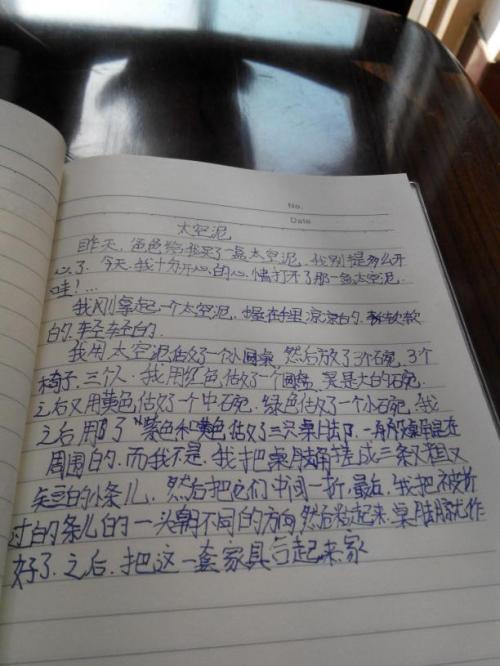 No.
Date
太空泥
昨天,爸爸给我买了一盒太空泥,我别提多么开
心了。今天,我十分开心的心情打开了那一盒太空泥,
哇!...
我刚拿起一个太空泥,握在手里凉凉的,软软
的,轻轻的。
我用太空泥做了一个小圆桌,然后放了3个碗,3个
椅子,三个人。我用红色做了一个圆盘,是最大的碗,
之后又用黄色做了一个中碗,绿色做了一个小碗,我
之后用了“紫色和黄色做了三只桌腿。一般桌角是在
周围的,而我不是,我把桌腿搓成三条又粗又
的小条儿,然后把它们中间一折,最后,我把被折
过的条儿的一头朝不同的方向然后粘起来,桌腿就作
好了。之后,把这一套家具合起来家